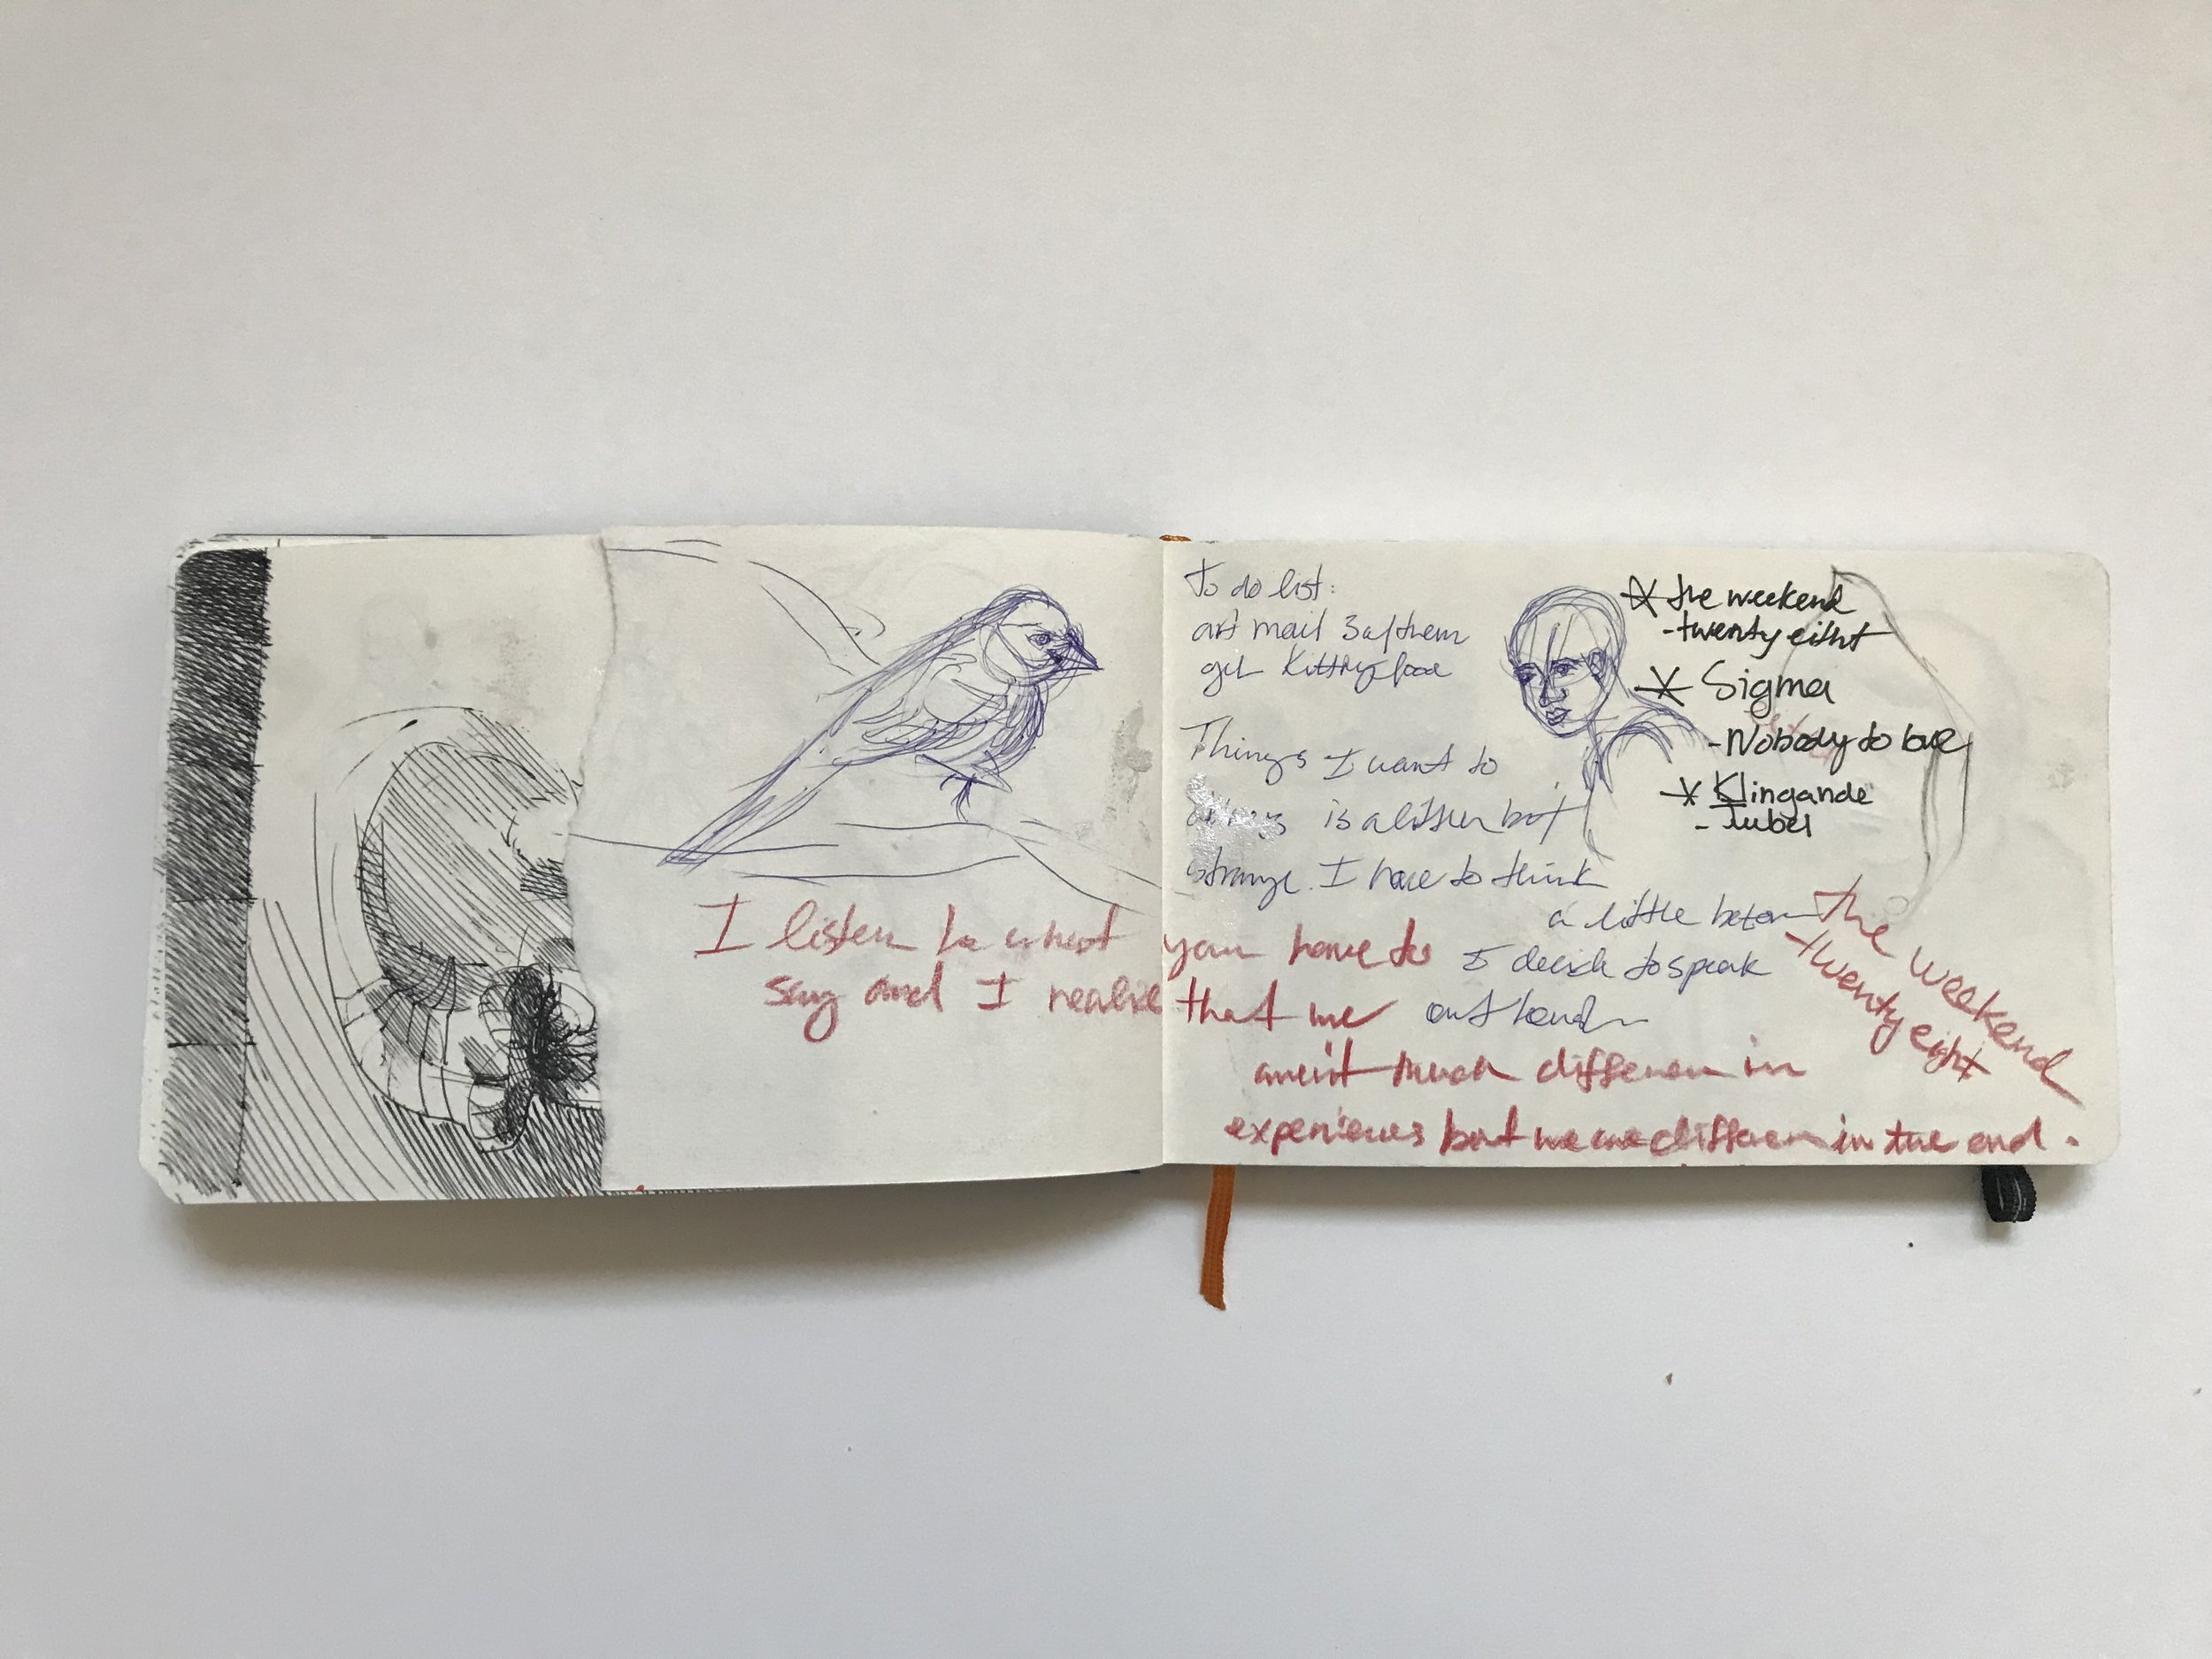 To do list:
art mail 3 of them
get Kitty food
Things I want to
is a little bit
strange. I have to think
a little before
I decide to speak
out loud
* the weekend
- twenty eiht
* Sigma
- Nobody to love
* Klingande
- Jubel
the weekend
twenty eight
I listen to what you have to
say and I realize that we
aren't much differen in
experiences but we are differen in the end.